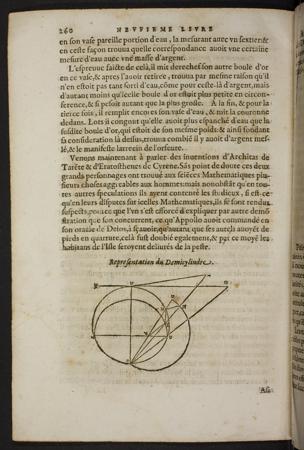 260 NEUFIESME LIVRE
en son vase pareille portion d'eau, la mesurant avec un sextier: & en ceste façon trouva quelle correspondance avoit une certaine mesure d'eau avec une masse d'argent.
L'espreuve faicte de celà, il mist derechef son autre boule d'or en ce vase, & apres l'avoir retirée, trouva par mesme raison qu'il n'en estoit pas tant sorti d'eau, côme pour ceste-là d'argent, mais d'autant moins qu'icelle boule d'or estoit plus petite en circonference, & si pesoit autant que la plus grosse. A la fin, & pour la tierce fois, il remplit encores son vase d'eau, & mit la couronne dedans. Lors il congnut qu'elle avoit plus espanché d'eau que la susdite boule d'or, qui estoit de son mesme poids: & ainsi fondant sa consideration là dessus, trouva combiē il y avoit d'argent meslé, & le manifeste larrecin de l'orfevre.
Venons maintenant à parler des inventions d'Architas de Tarēte & d'Eratosthenes de Cyrene. Sās point de doute ces deux grands personnages ont trouvé aux sciēces Mathematiques plusieurs choses aggreables aux hommes: mais nonobstāt qu'en toutes autres speculations ils ayent contenté les studieux, si est-ce qu'en leurs disputes sur icelles Mathematiques, ils se sont rendus suspects, pource que l'un s'est efforcé d'expliquer par autre demōstration que son concurrent, ce qu'Appollo avoit commandé en son oracle de Delos, à sçavoir, qu'autant que ses autels avoyēt de pieds en quarrure, celà fust doublé egalement, & par ce moyē les habitans de l'Isle seroyent delivrés de la peste.
Representation du Demicylindre.